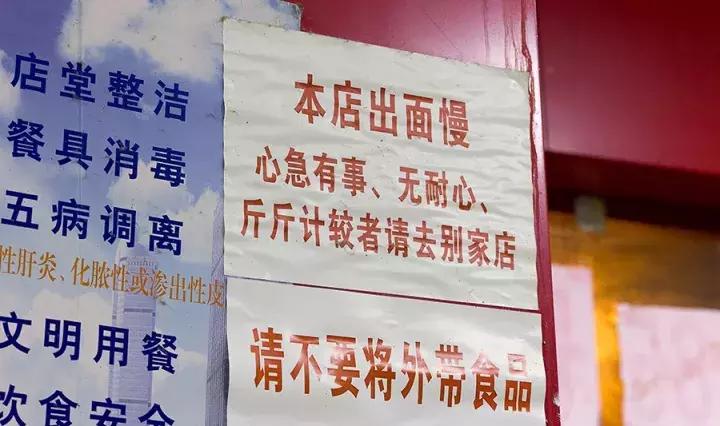 店堂整洁
餐具消毒
五病调离
性肝炎、化脓性或渗出性皮
文明用餐
饮食安全
本店出面慢
心急有事、无耐心、
斤斤计较者请去别家店
请不要将外带食品